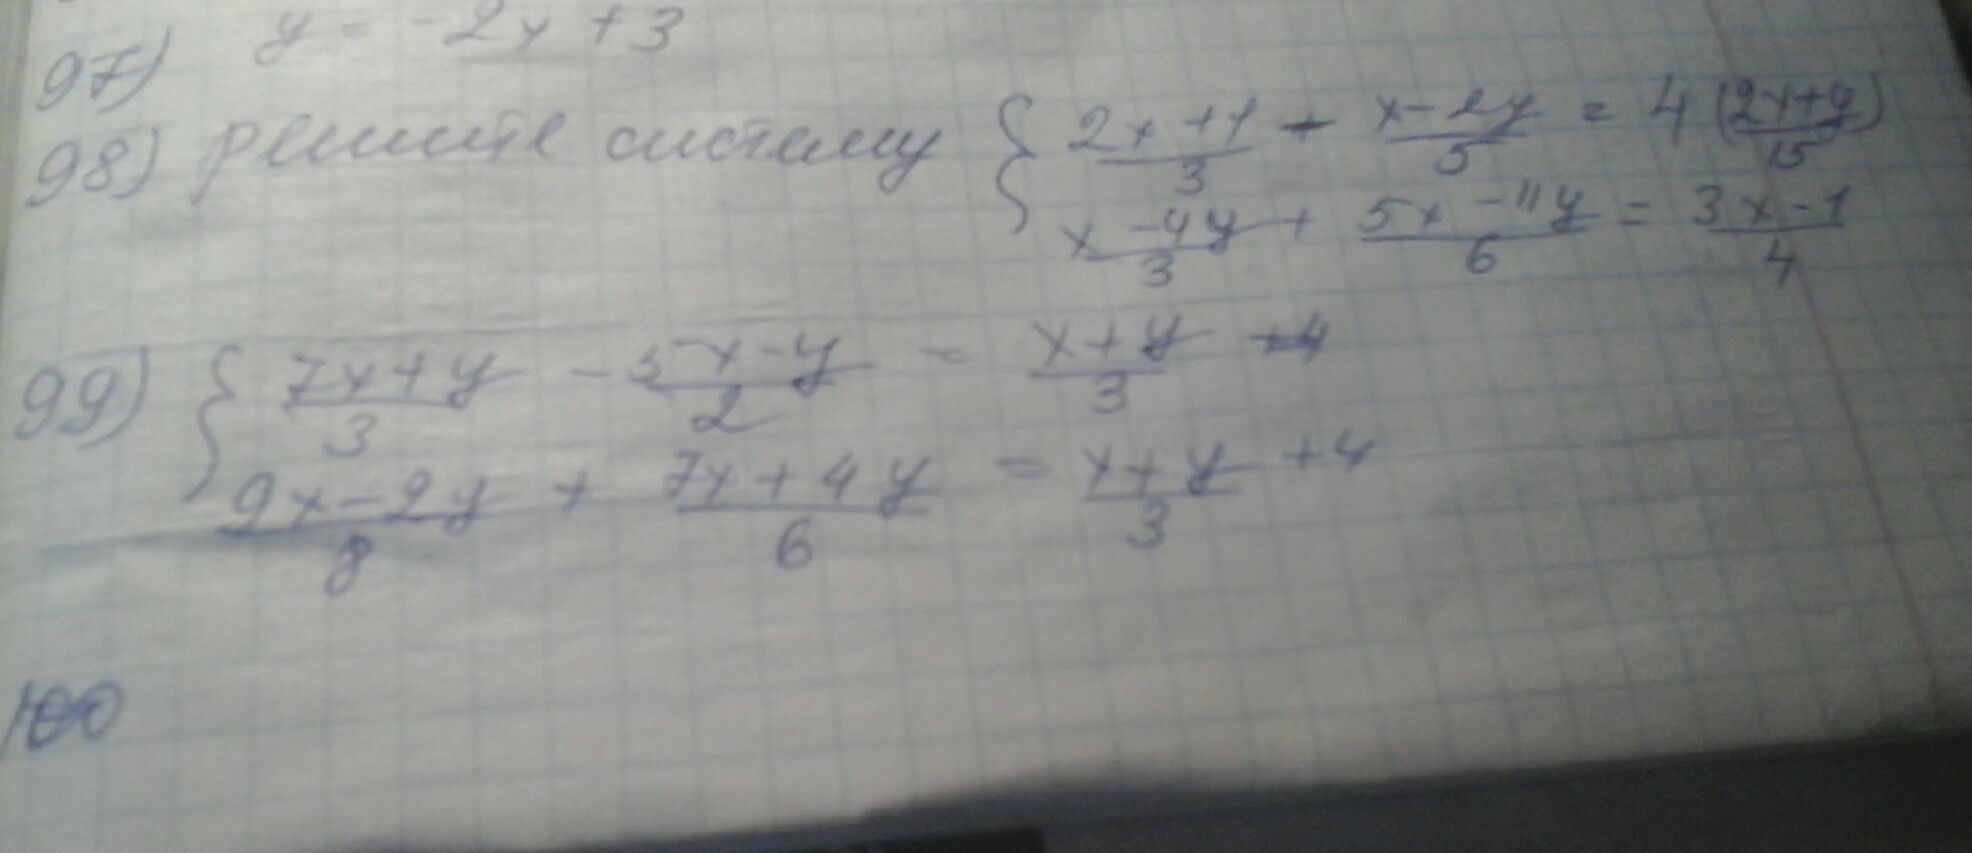 97) y = -2x + 3
98) решите систему { (2x+1)/3 + (x-2y)/5 = 4 (2x+y)/15
(x-4y)/3 + (5x-11y)/6 = (3x-1)/4
99) { (7x+y)/3 - (5x-y)/2 = (x+y)/3 +4
(9x-2y)/8 + (7x+4y)/6 = (x+y)/3 +4
100